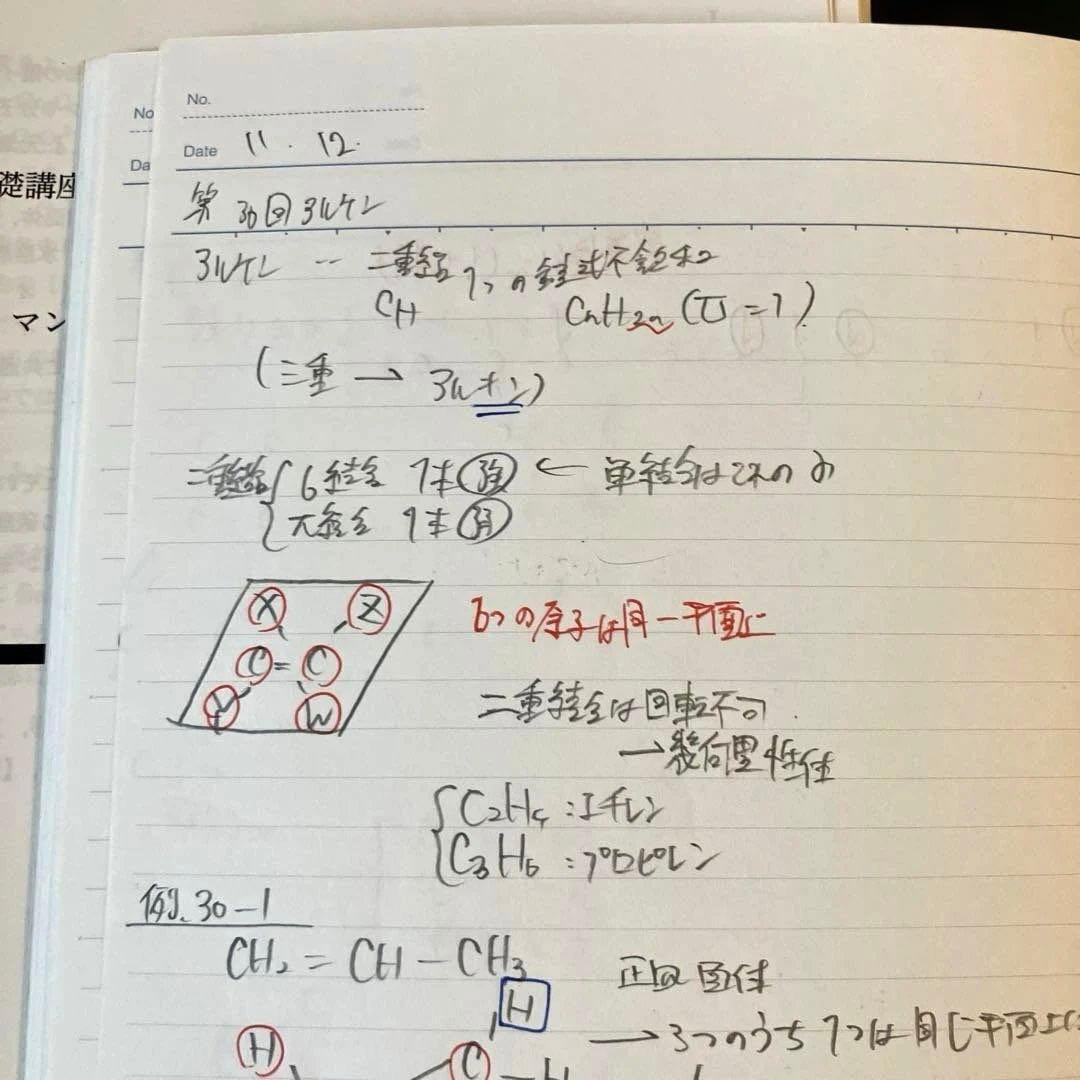 No.
No
Date 11. 12.
Da
礎講座
マン
第30回アルケン
アルケン … 二重結合1つの鎖式不飽和
CH CnH2n (π=1)
(三重 → アルキン)
二重結合 { σ結合 1本 強 ← 単結合はこれのみ
π結合 1本 弱
X Z
C = C
Y W
6つの原子は同一平面上
二重結合は回転不可
→幾何異性体
C2H4 : エチレン
C3H6 : プロピレン
例.30-1
CH2 = CH - CH3
正四面体
H
→ 3つのうち1つは同じ平面上に
H C - H